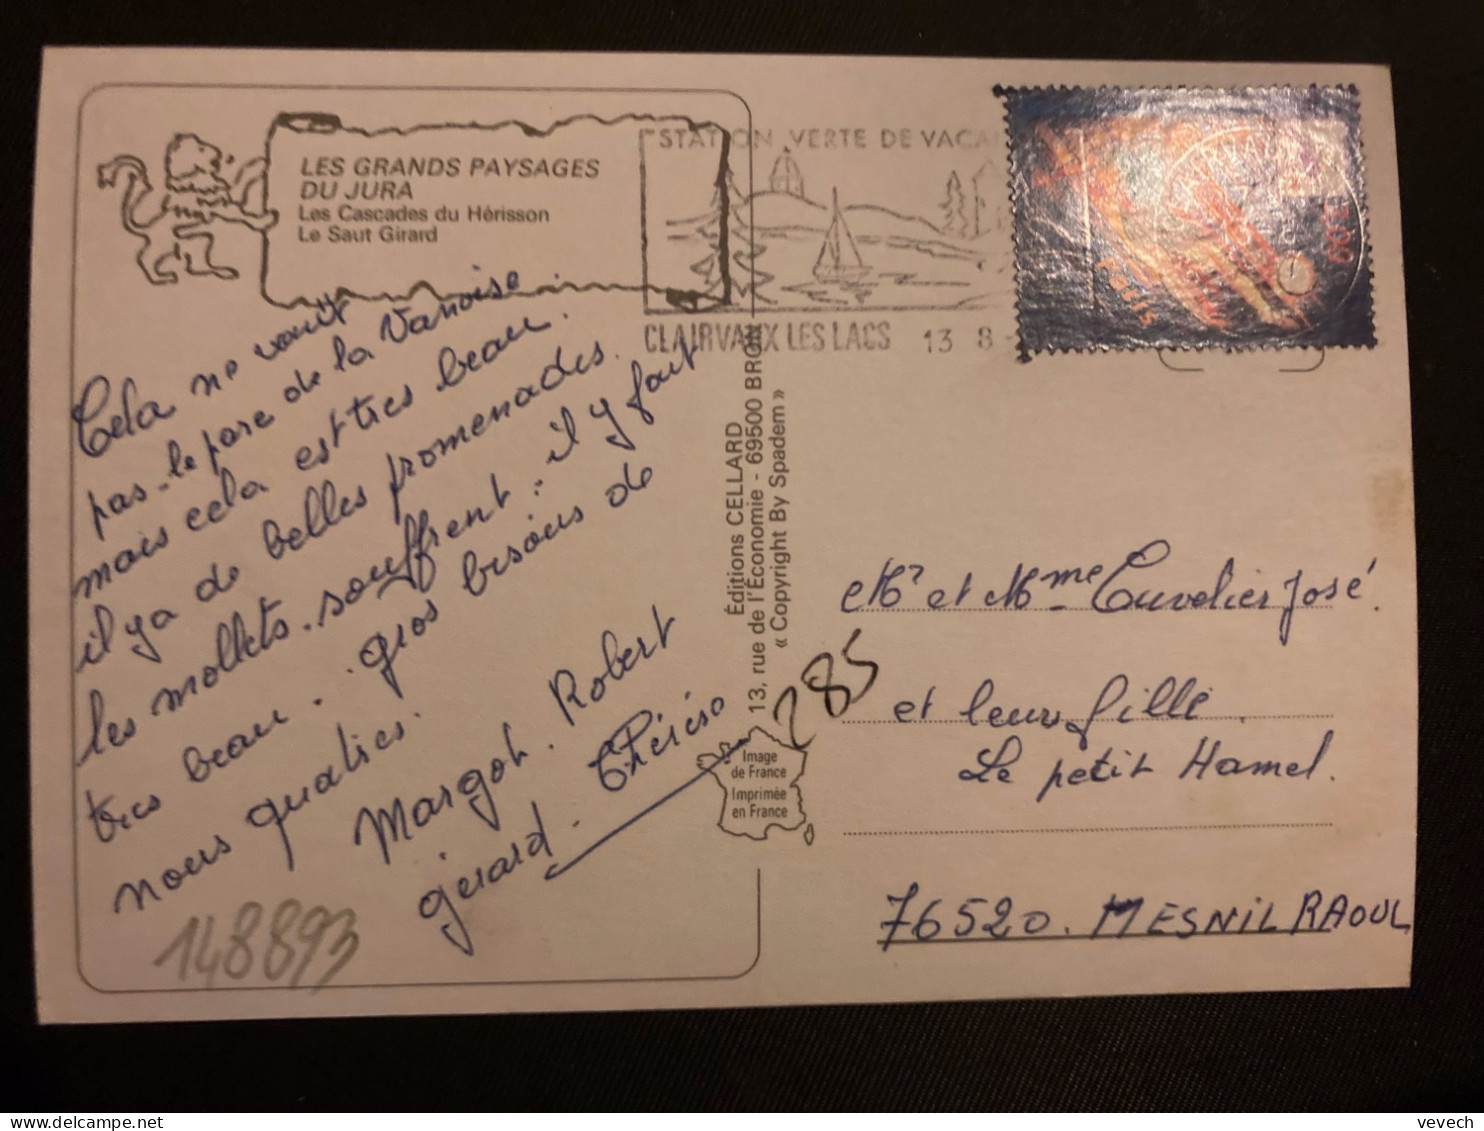 LES GRANDS PAYSAGES
DU JURA
Les Cascades du Hérisson
Le Saut Girard
STATION VERTE DE VACAN
CLAIRVAUX LES LACS 13 8
3,00
Cela ne vaut
pas le parc de la Vanoise
mais cela est très beau.
il y a de belles promenades.
les mollets souffrent : il y fait
très beau. gros bisous de
nous quatres.
Margot. Robert
gérard. Thérèse
148893
Éditions CELLARD
13, rue de l'Économie - 69500 BRON
« Copyright By Spadem »
285
Image
de France
Imprimée
en France
Mr et Mme Cuvelier José.
et leur fille.
Le petit Hamel.
76520. MESNIL RAOUL
vevech